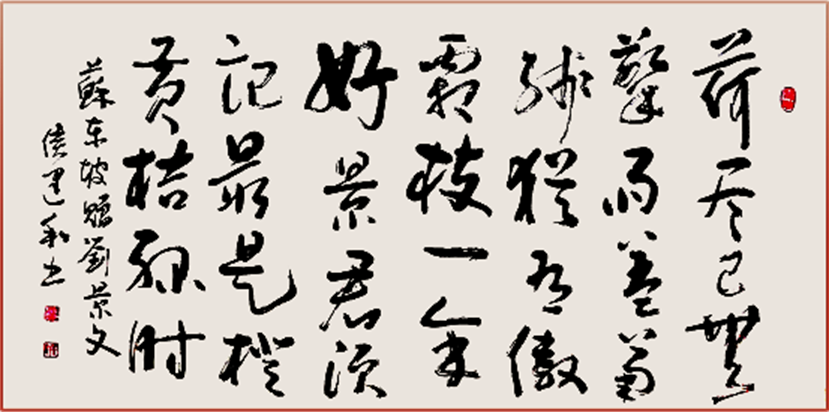 荷尽已無
擎雨盖菊
残犹有傲
霜枝一年
好景君须
记最是橙
黄桔绿时
蘇东坡赠劉景文
书